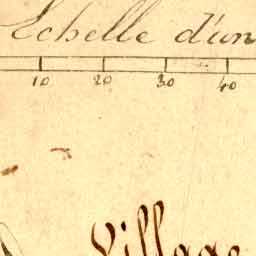 Echelle d'un
10 20 30 40
Village